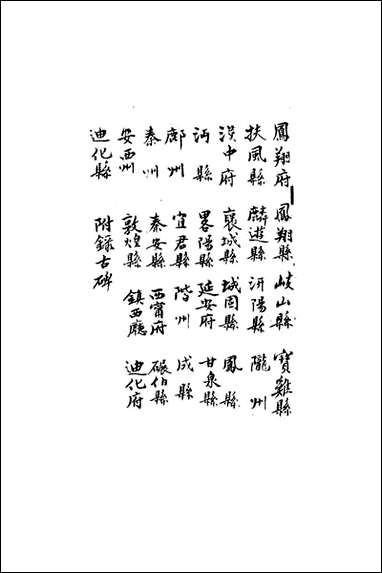 鳳翔府 鳳翔縣 岐山縣 寶雞縣
扶風縣 麟遊縣 汧陽縣 隴州
漢中府 襄城縣 城固縣 鳳縣
沔縣 畧陽縣 延安府 甘泉縣
鄜州 宜君縣 階州 成縣
秦州 秦安縣 西甯府 碾伯縣
安西州 敦煌縣 鎮西廳 迪化府
迪化縣 附錄古碑